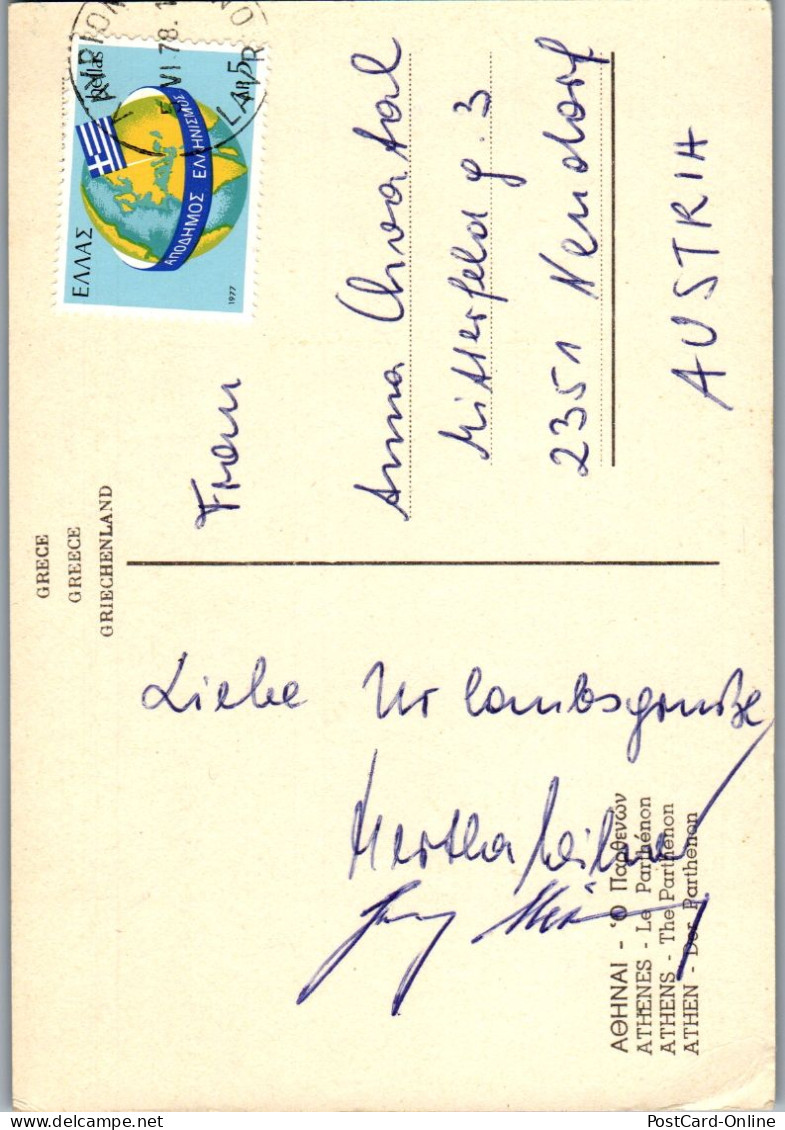 GRECE
GREECE
GRIECHENLAND
ΕΛΛΑΣ
hellas
ΔΡ 5
ΑΠΟΔΗΜΟΣ ΕΛΛΗΝΙΣΜΟΣ
1977
VI 78
Frau
Anna Chvatal
Mitterfeldg. 3
2351 Neudorf
AUSTRIA
Liebe Urlaubsgrüße
Hertha
ΑΘΗΝΑΙ - Ὁ Παρθενών
ATHENES - Le Parthénon
ATHENS - The Parthenon
ATHEN - Der Parthenon
PostCard-Online